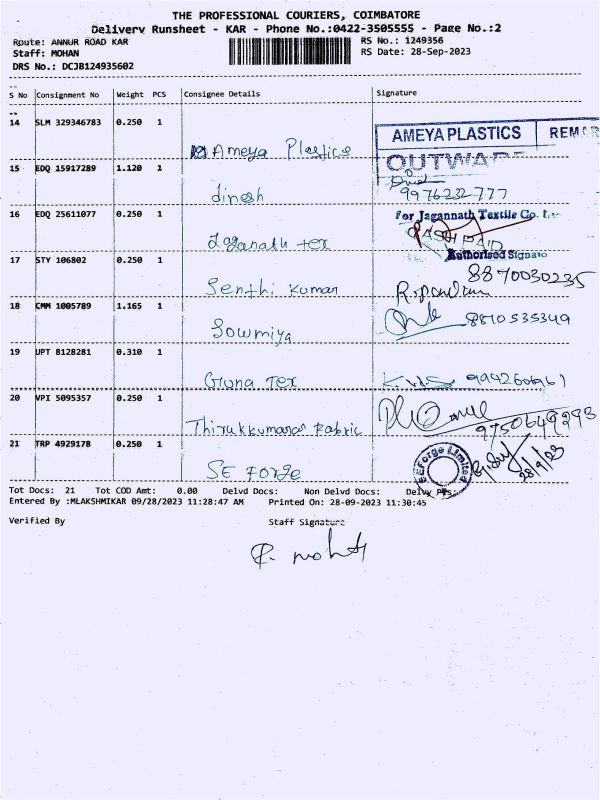 THE PROFESSIONAL COURIERS, COIMBATORE
Delivery Runsheet - KAR - Phone No.:0422-3505555 - Page No.:2
Route: ANNUR ROAD KAR
RS No.: 1249356
Staff: MOHAN
RS Date: 28-Sep-2023
DRS No.: DCJB124935602
S No Consignment No Weight PCS Consignee Details Signature
14 SLM 329346783 0.250 1
Ameya Plastics
AMEYA PLASTICS
15 EDQ 15917289 1.120 1
OUTWARD
dinesh
9976232777
16 EDQ 25611077 0.250 1
For Jagannath Textile Co. L
Jaganath tex
CASH PAID
Authorised Signato
17 STY 106802 0.250 1
8870030235
Senthi Kumar
18 CMM 1005789 1.165 1
8810535349
Sowmiya
19 UPT 8128281 0.310 1
Guna Tex
9942606961
20 VPI 5095357 0.250 1
Thirukkumaran Fabric
9750649293
21 TRP 4929178 0.250 1
SE Forge
SEForge Limited
28/9/23
Tot Docs: 21 Tot COD Amt: 0.00 Delvd Docs: Non Delvd Docs: Delvy Pts:
Entered By :MLAKSHMIKAR 09/28/2023 11:28:47 AM Printed On: 28-09-2023 11:30:45
Verified By Staff Signature